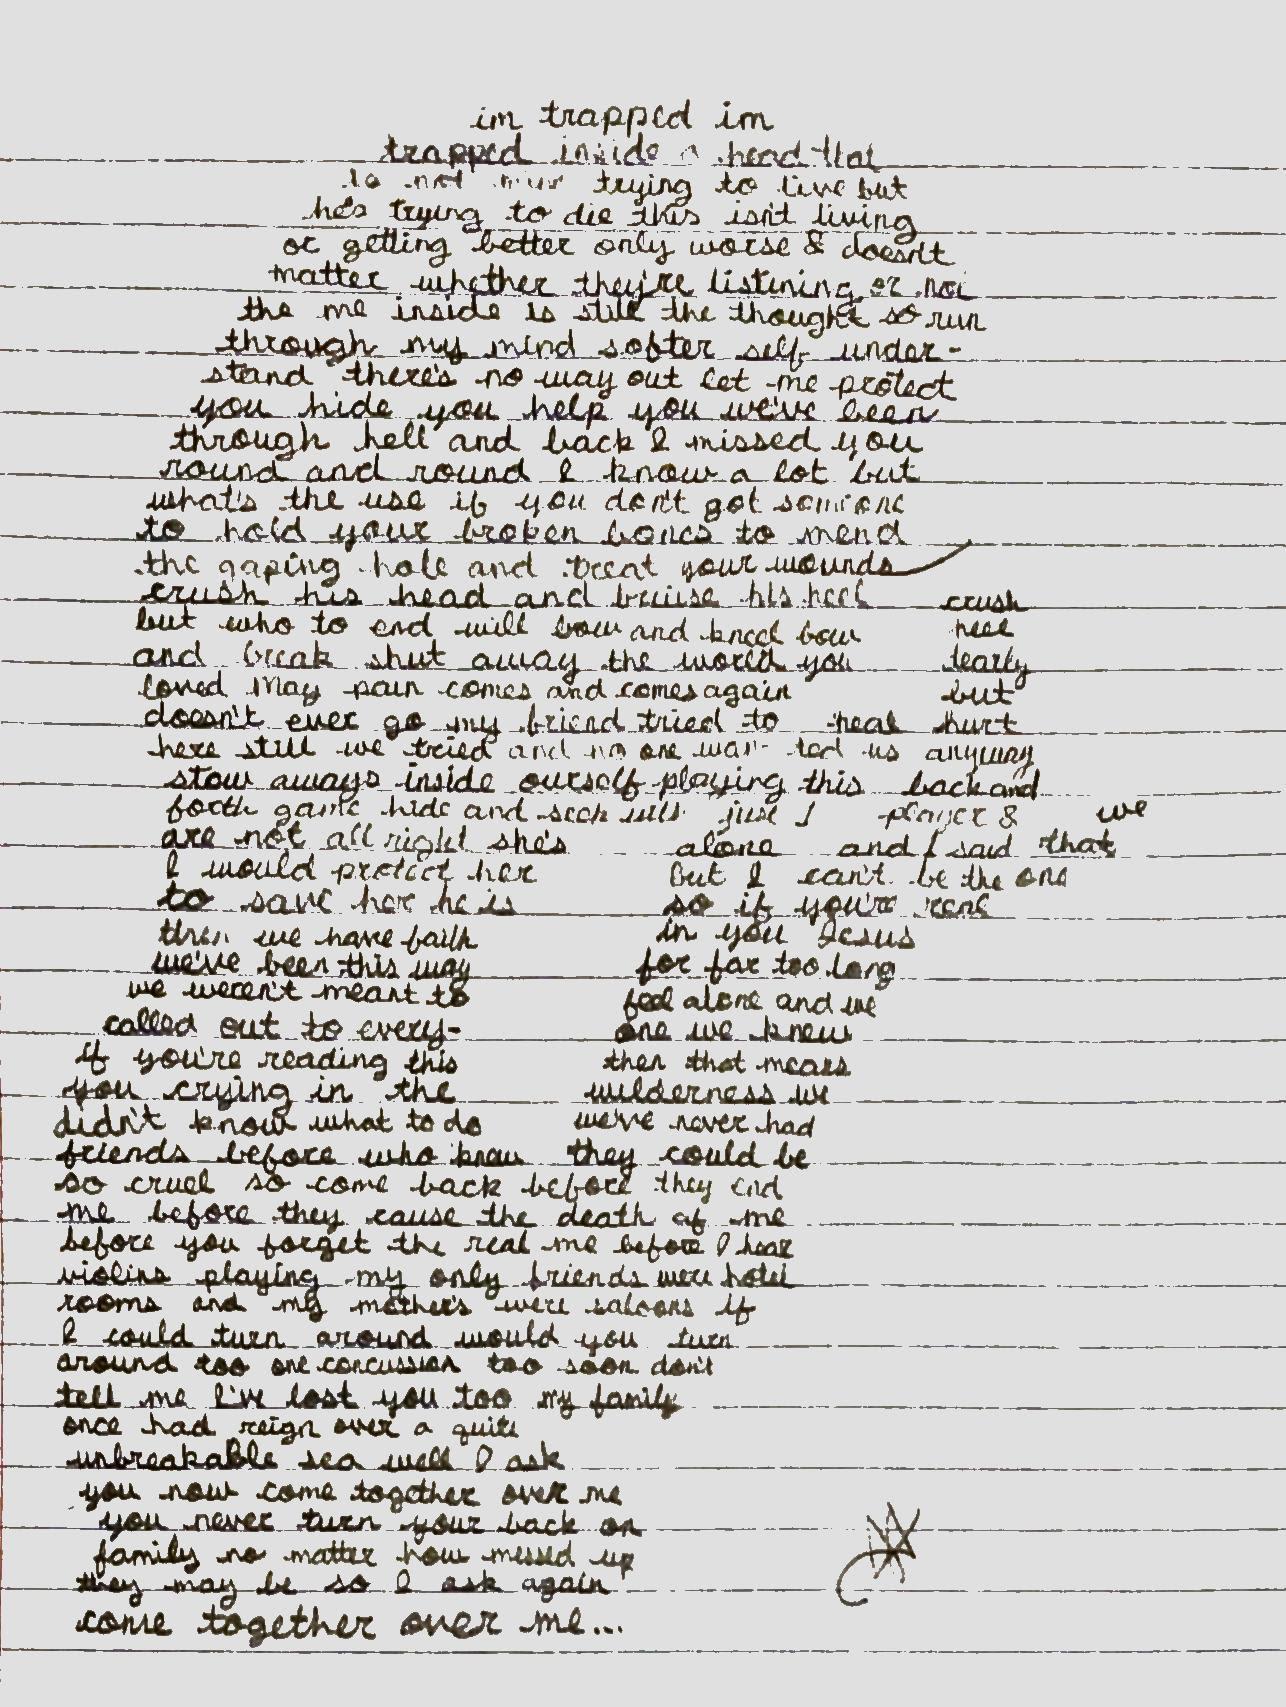 im trapped im
trapped inside a head that
is not mine trying to live but
he's trying to die this isn't living
or getting better only worse & doesn't
matter whether they're listining or not
the me inside is still the thought so run
through my mind softer self under-
stand there's no way out let me protect
you hide you help you we've been
through hell and back I missed you
round and round I know a lot but
what's the use if you don't got someone
to hold your broken bones to mend
the gaping hole and treat your wounds
crush his head and bruise his heel crush
but who to end will bow and kneel bow heel
and break shut away the world you
loved May pain comes and comes again but
doesn't ever go my friend tried to heal hurt
here still we tried and no one wan- ted us anyway
stow aways inside ourself playing this back and
forth game hide and seek just I player & we
are not all right she's alone and I said that
I would protect her but I can't be the one
to save her he is so if you're real
then we have faith in you Jesus
we've been this way for far too long
we weren't meant to feel alone and we
called out to every- one we knew
if you're reading this then that means
you crying in the wilderness we
didn't know what to do we've never had
friends before who knew they could be
so cruel so come back before they end
me before they cause the death of me
before you forget the real me before I hear
violins playing my only friends were hotel
rooms and my mother's were saloons if
I could turn around would you turn
around too one concussion too soon don't
tell me I've lost you too my family
once had reign over a quite
unbreakable sea well I ask
you now come together over me
you never turn your back on
family no matter how messed up
they may be so I ask again
come together over me...